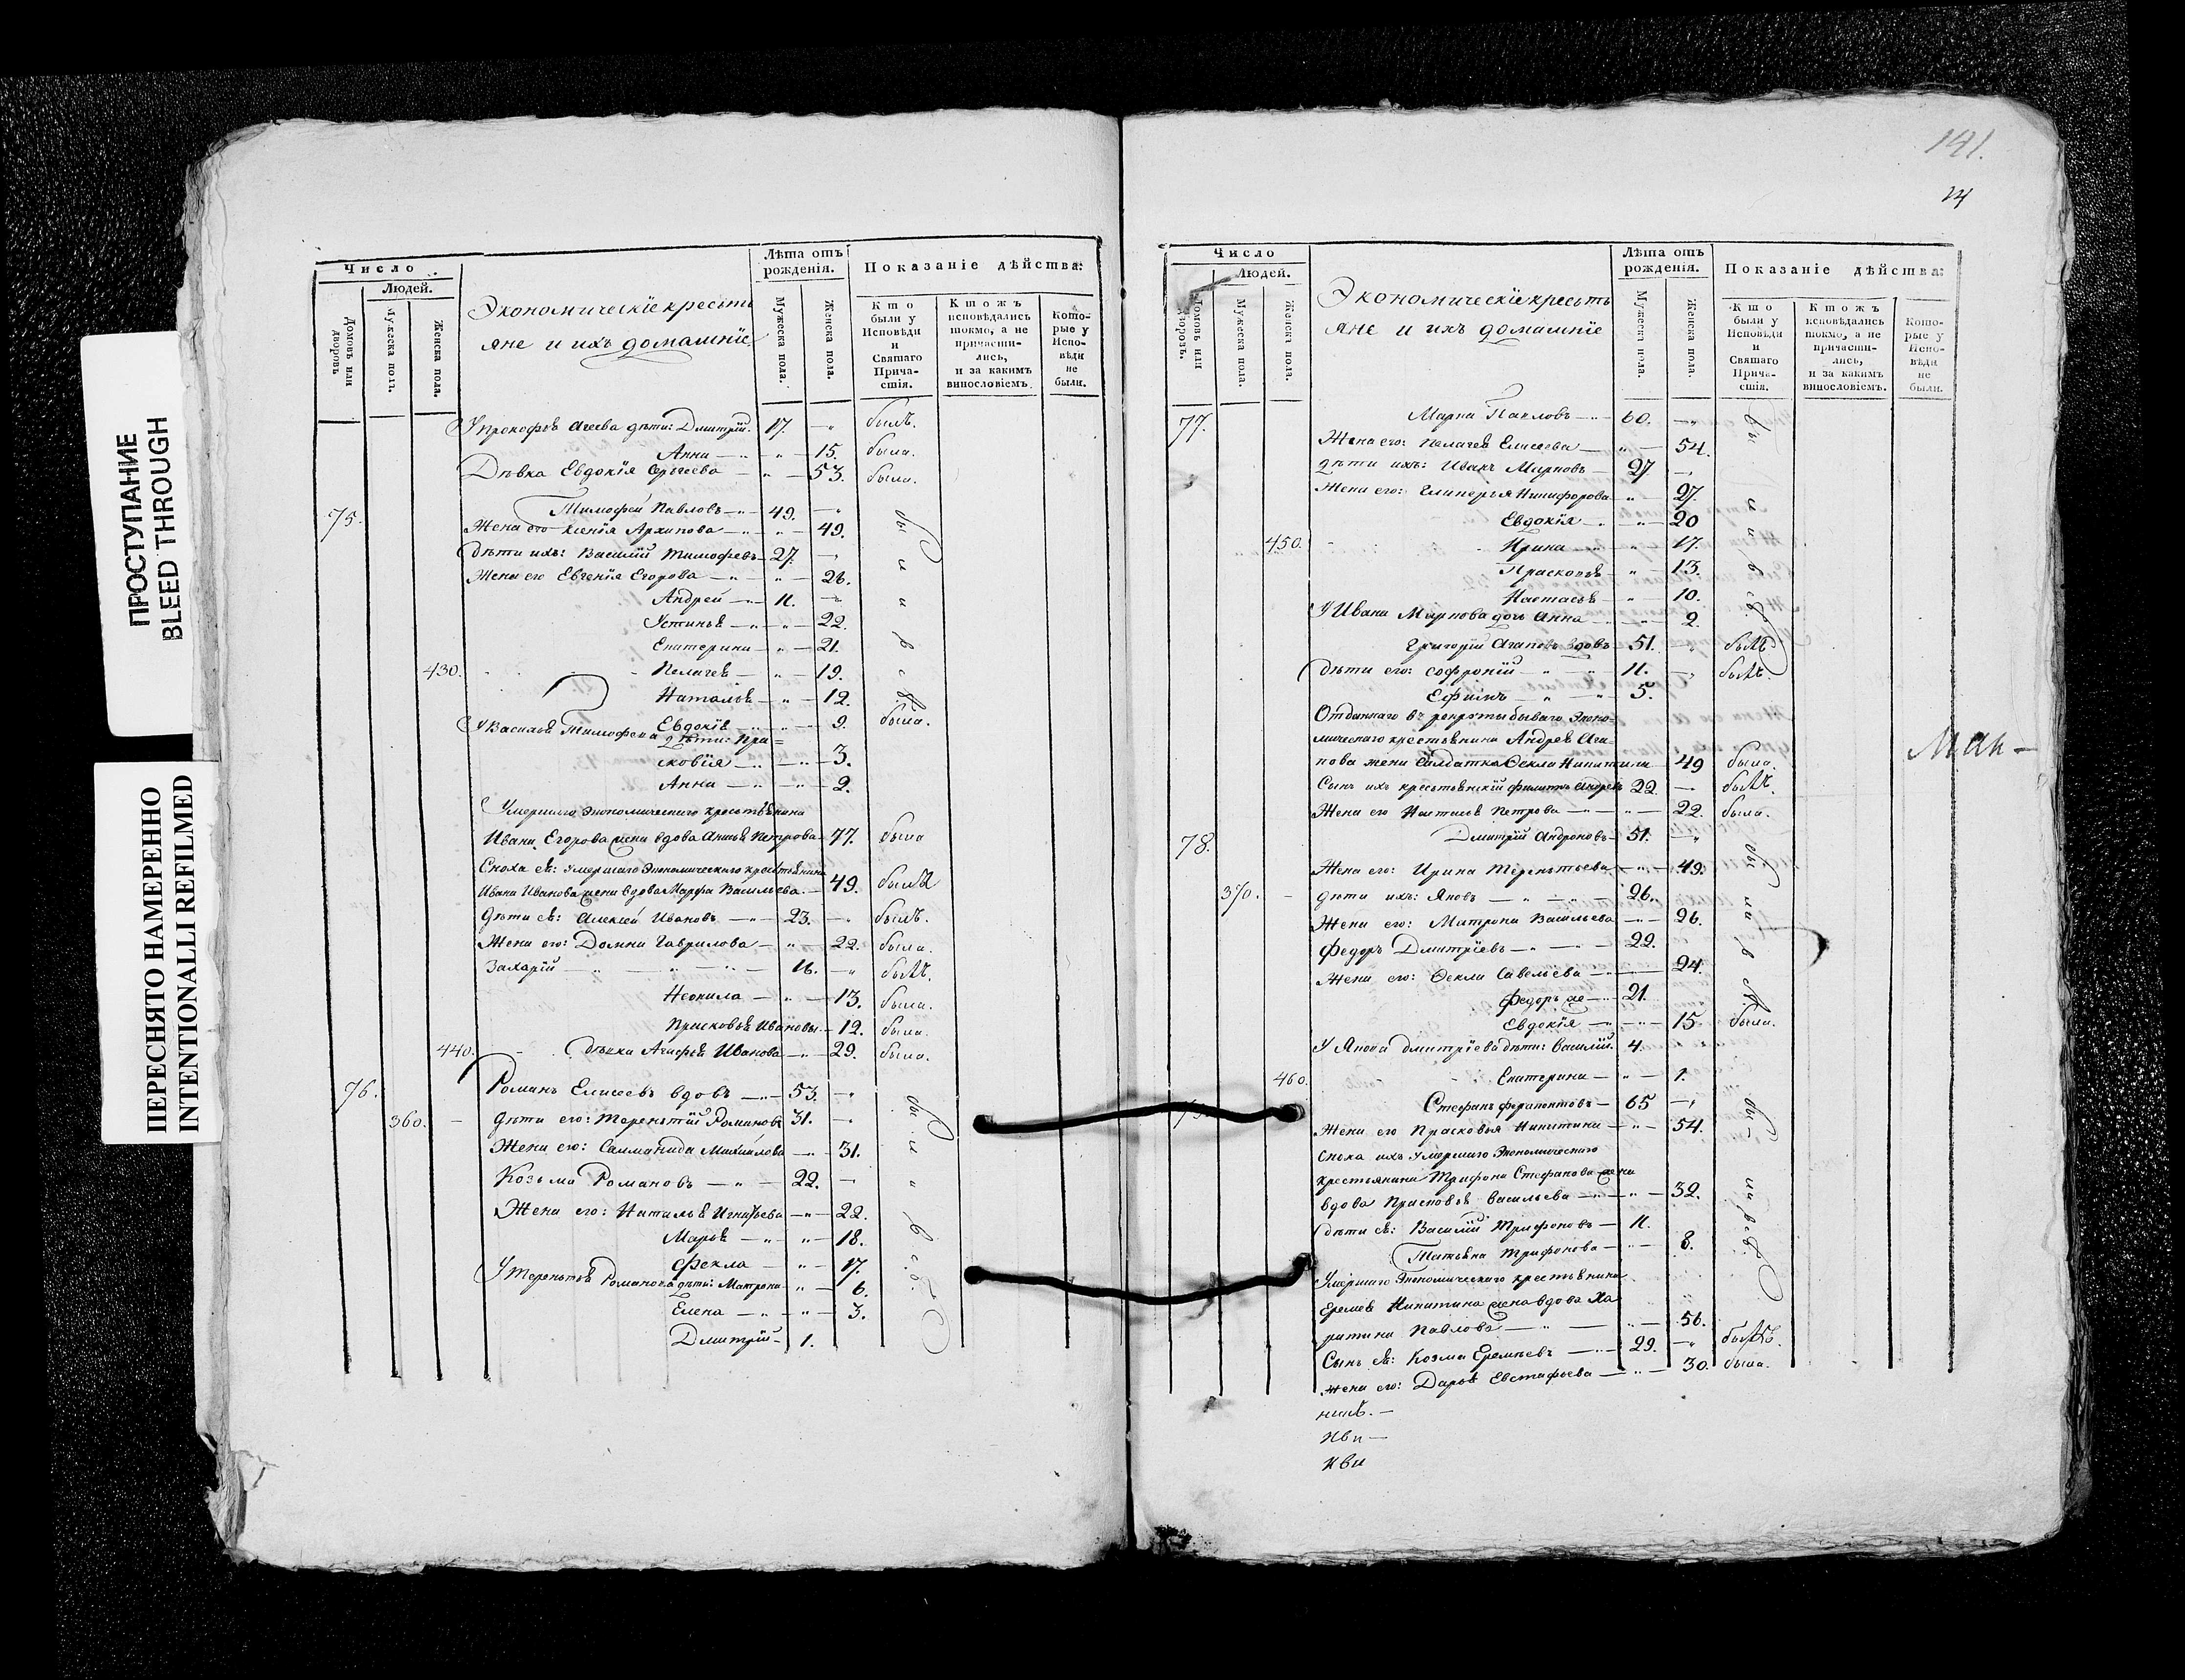 ПРОСТУПАНИЕ
BLEED THROUGH
ПЕРЕСНЯТО НАМЕРЕННО
INTENTIONALLI REFILMED
Число
Людей.
Домовъ или дворовъ
Мужеска полъ.
Женска пола.
Экономическїе кресть
яне и ихъ домашнїе
Лѣта отъ рожденія.
Мужеска пола.
Женска пола.
Показаніе дѣйства:
Кто были у Исповѣди и Святаго Прича-стія.
Ктожъ исповѣдались токмо, а не причасти-лись, и за какимъ винословіемъ.
Кото-рые у Испо-вѣди не были.
У прокофья Агеева дѣти: Дмитрїй. 17. былъ.
Анна 15. была.
Дѣвка Евдокїя Сергеева 53. была.
75. Тимофей Павловъ 49.
Жена его Ксенїя Архипова 49.
Дѣти ихъ: Василїй Тимофевъ 27.
Жена его Евгенїя Егорова 26.
Андрей 11.
Устинья 22.
Екатерина 21.
430. Пелагея 19.
Наталья 12.
Евдокїя 9. была.
У Василья Тимофева дѣти: Пра=
сковїя 3.
Анна 2.
Умершаго Экономическаго крестьянина
Ивана Егорова жена вдова Анисья Петрова 77. была
Сноха ея: Умершаго Экономическаго крестьянина
Ивана Иванова жена вдова Марфа Васильева 49. была
Дѣти ея: Алексей Ивановъ 23. былъ.
Жена его: Домна Гаврилова 22. была.
Захарїй 16. былъ.
Неонила 13. была.
Прасковья Ивановы 12. была.
440. Дѣвка Агафья Иванова 29. была.
76. Романъ Елисеевъ вдовъ 53.
360. Дѣти его: Терентїй Романовъ 31.
Жена его: Саламанида Михайлова 31.
Козьма Романовъ 22.
Жена его: Наталья Игнатьева 22.
Марья 18.
Фекла 17.
У Терентья Романова дѣти: Матрона 6.
Елена 3.
Дмитрїй 1.
141.
24
Число
Людей.
Домовъ или дворовъ.
Мужеска пола.
Женска пола.
Экономическїе кресть
яне и ихъ домашнїе
Лѣта отъ рожденія.
Мужеска пола.
Женска пола.
Показаніе дѣйства:
Кто были у Исповѣди и Святаго Прича-стія.
Ктожъ исповѣдались токмо, а не причасти-лись, и за какимъ винословіемъ.
Кото-рые у Испо-вѣди не были.
77. Марка Павловъ 60.
Жена его: Пелагея Елисеева 54.
Дѣти ихъ: Иванъ Марковъ 27
Жена его: Гликерья Никифорова 27.
Евдокїя 20
450. Ирина 17.
Прасковья 13.
Настасья 10.
У Ивана Маркова дочь Анна 2.
Григорїй Агаповъ вдовъ 51. былъ
Дѣти его: Софронїй 11. былъ.
Ефимъ 5.
Отданнаго въ рекруты бываго Эконо=
мическаго крестьянина Андрея Ага=
пова жена Салдатка Фекла Никитина 49 была.
Сынъ ихъ крестьянскїй Филипъ Андреевъ 22. былъ.
Жена его Настасья Петрова 22. была.
78. Дмитрїй Андроновъ 51.
Жена его: Ирина Терентьева 49.
370. Дѣти ихъ: Яковъ 26.
Жена его: Матрона Васильева 26.
Федоръ Дмитрїевъ 22.
Жена его: Фекла Савельева 24.
Федоръ же 21.
Евдокїя 15 была.
У Якова Дмитрїева дѣти: Василїй. 4.
460. Екатерина 1.
Стефанъ Ферапонтовъ 65
Жена его Прасковья Никитина 54.
Сноха ихъ Умершаго Экономическаго
крестьянина Трифона Стефанова жена
вдова Прасковья Васильева 32.
Дѣти ея: Василїй Трифоновъ 11.
Татьяна Трифонова 8.
Умершаго Экономическаго крестьянина
Еремея Никитина жена вдова Ха
ритина Павлова 56.
Сынъ ея: Козма Еремѣевъ 29. былъ.
Жена его: Дарья Евстафьева 30. была.